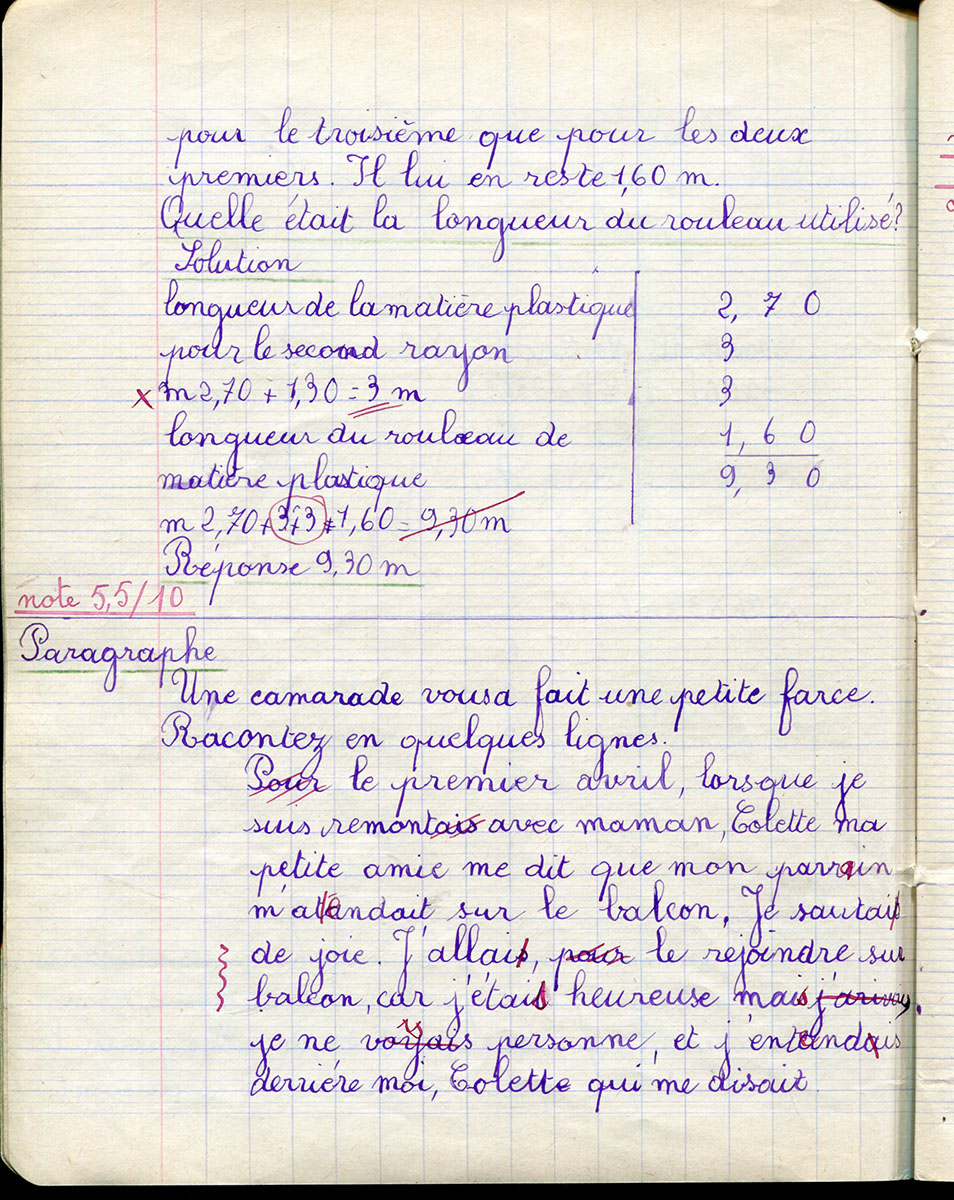 pour le troisième que pour les deux
premiers. Il lui en reste 1,60 m.
Quelle était la longueur du rouleau utilisé?
Solution
longueur de la matière plastique
pour le second rayon
x m 2,70 + 1,30 = 3 m
longueur du rouleau de
matière plastique
m 2,70 + 3 + 3 + 1,60 = 9,30 m
Réponse 9,30 m
2,70
3
3
1,60
9,30
note 5,5/10
Paragraphe
Une camarade vous a fait une petite farce.
Racontez en quelques lignes.
Pour le premier avril, lorsque je
suis remontais avec maman, Colette ma
petite amie me dit que mon parrain
m'attendait sur le balcon. Je sautai
de joie. J'allai, pour le rejoindre sur
balcon, car j'étais heureuse mais j'arivay.
je ne voyais personne, et j'entendais
derrière moi, Colette qui me disait